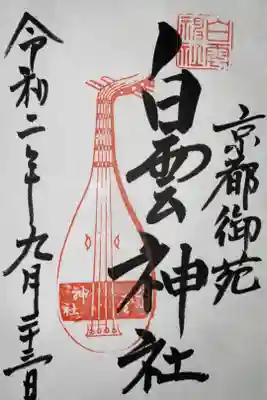 京都御苑
白雲神社
令和二年九月二十三日
白雲
神社
神社